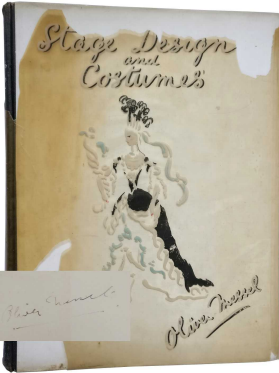 Stage Design
and
Costumes
Oliver Messel
Oliver Messel